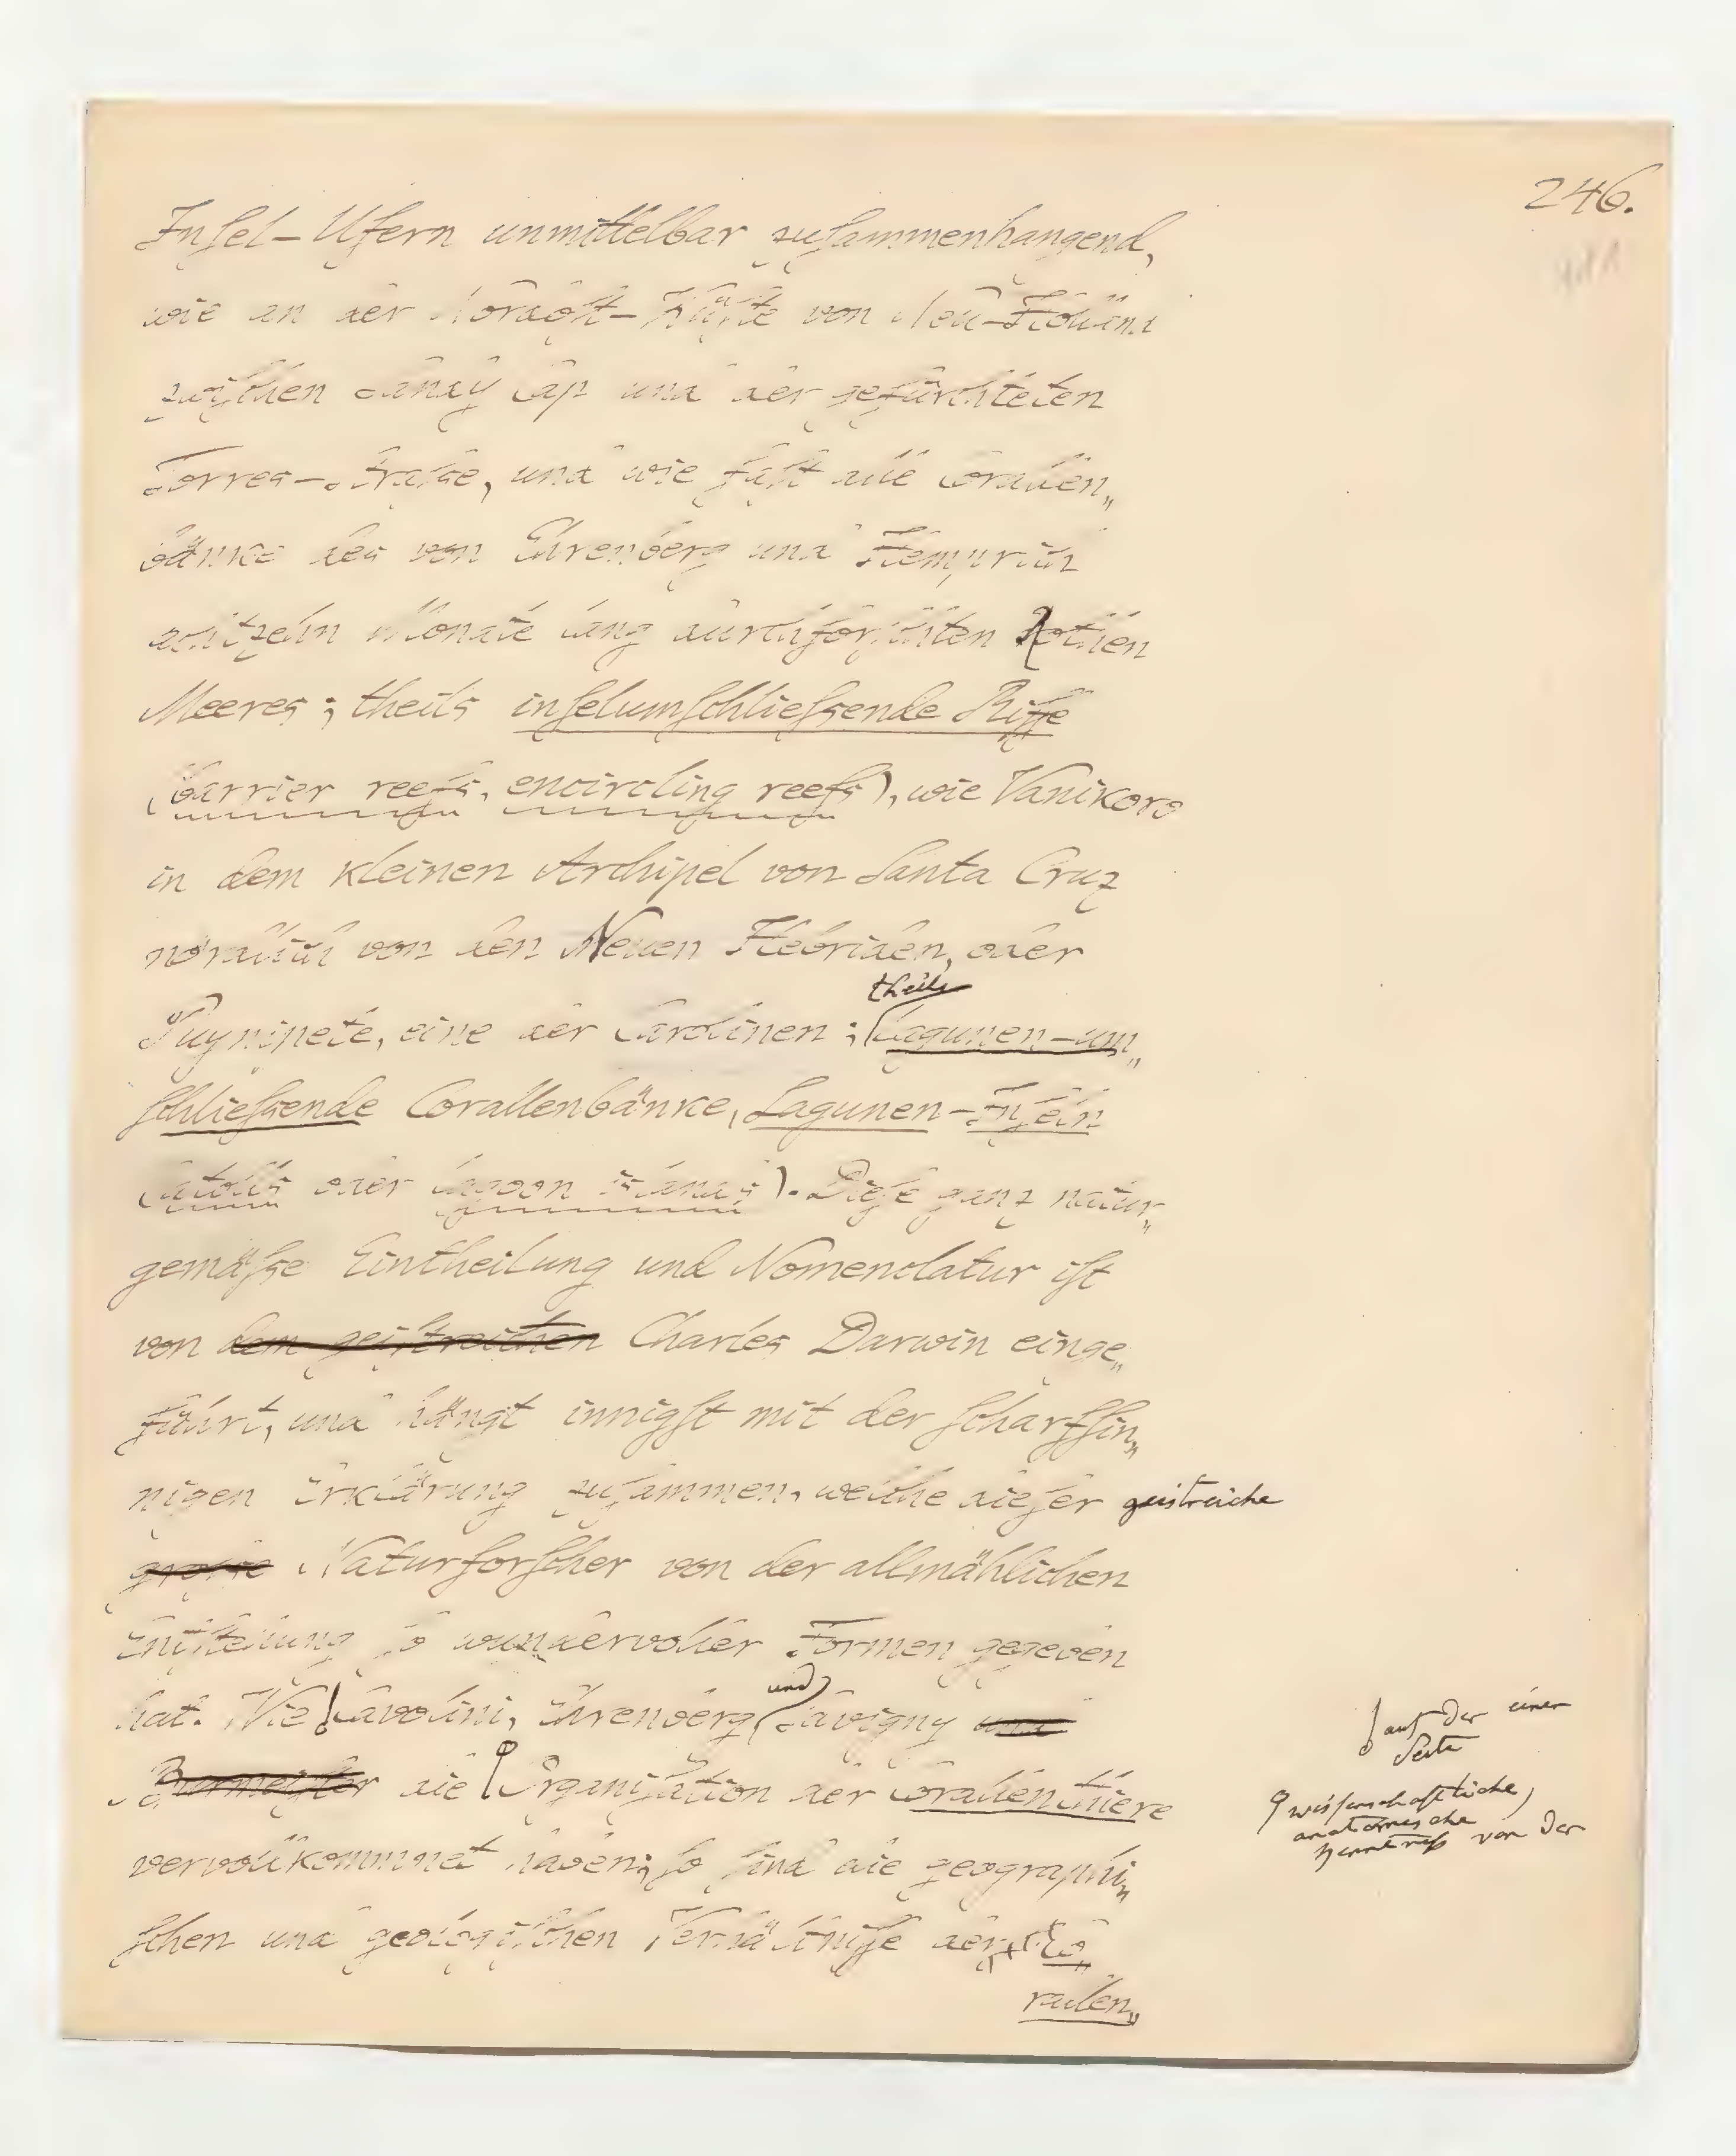 246.
Insel-Ufern unmittelbar zusammenhangend,
wie an der Nordost-Küste von Neu-Holland
zwischen Sandy Cap und der gefürchteten
Torres-Straße, und wie fast alle Corallen„
bänke des von Ehrenberg und Hemprich
achtzehn Monate lang durchforschten Rothen
Meeres; theils inselumschließende Riffe
(barrier reefs, encircling reefs), wie Vanikoro
in dem kleinen Archipel von Santa Cruz
nördlich von den Neuen Hebriden, oder
theils
Puynipete, eine der Carolinen; Lagunen-um„
schließende Corallenbänke, Lagunen-Inseln
(atolls oder lagoon islands). Diese ganz natur„
gemäße Eintheilung und Nomenclatur ist
von dem geistreichen Charles Darwin einge„
führt, und hängt innigst mit der scharfsin„
nigen Erklärung zusammen, welche dieser geistreiche
große Naturforscher von der allmählichen
Entstehung so wundervoller Formen gegeben
und
hat. Wie Cavolini, Ehrenberg, Savigny und
auf der einen
Seite
Burmeister die Organisation der Corallenthiere
wissenschaftliche,
anatomische
Kenntniß von der
vervollkommnet haben; so sind die geographi„
schen und geologischen Verhältnisse der Co„
rallen„